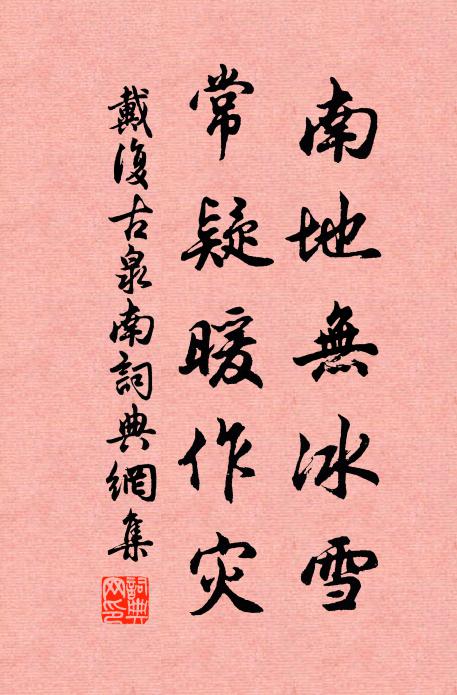 南地無冰雪
常疑暖作灾
戴復古泉南詞典網集
詞典網印